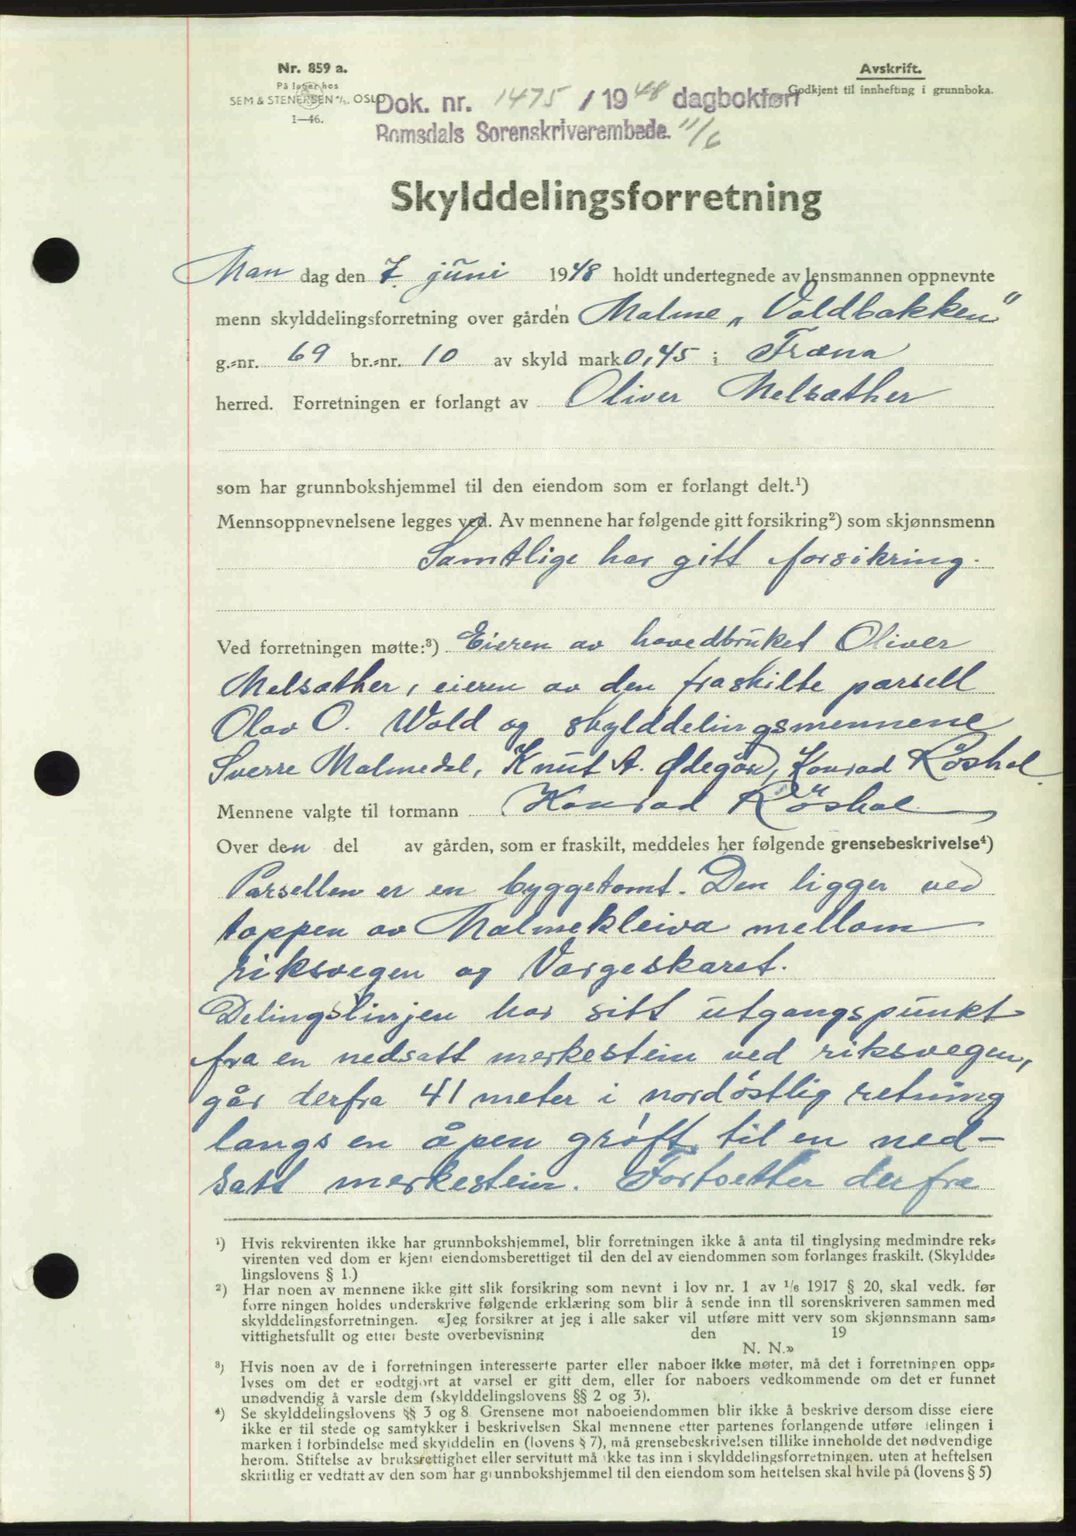 Nr. 859 a.
På lager hos
SEM & STENERSEN A/S, OSLO
1—46.
Avskrift.
Godkjent til innhefting i grunnboka.
Dok. nr. 1475 / 1948 dagbokført
Romsdals Sorenskriverembede. 11/6
Skylddelingsforretning
Man dag den 7. juni 1948 holdt undertegnede av lensmannen oppnevnte
menn skylddelingsforretning over gården Malme „Voldbakken"
g.-nr. 69 br.-nr. 10 av skyld mark 0,45 i Fræna
herred. Forretningen er forlangt av Oliver Melsæther
som har grunnbokshjemmel til den eiendom som er forlangt delt.¹)
Mennsoppnevnelsene legges ved. Av mennene har følgende gitt forsikring²) som skjønnsmenn
Samtlige har gitt forsikring.
Ved forretningen møtte:³) Eieren av hovedbruket Oliver
Melsæther, eieren av den fraskilte parsell
Olav O. Wold og skylddelingsmennene
Sverre Malmedal, Knut A. Ødegård, Konrad Röshol
Mennene valgte til formann Konrad Röshol
Over den del av gården, som er fraskilt, meddeles her følgende grensebeskrivelse⁴)
Parsellen er en byggetomt. Den ligger ved
toppen av Malmekleiva mellom
riksvegen og Vargeskaret.
Delingslinjen har sitt utgangspunkt
fra en nedsatt merkestein ved riksvegen,
går derfra 41 meter i nordöstlig retning
langs en åpen grøft til en ned-
satt merkestein. Fortsetter derfra
¹) Hvis rekvirenten ikke har grunnbokshjemmel, blir forretningen ikke å anta til tinglysing medmindre rek-
virenten ved dom er kjent eiendomsberettiget til den del av eiendommen som forlanges fraskilt. (Skyldde-
lingslovens § 1.)
²) Har noen av mennene ikke gitt slik forsikring som nevnt i lov nr. 1 av 1/6 1917 § 20, skal vedk. før
forretningen holdes underskrive følgende erklæring som blir å sende inn til sorenskriveren sammen med
skylddelingsforretningen. «Jeg forsikrer at jeg i alle saker vil utføre mitt verv som skjønnsmann sam-
vittighetsfullt og etter beste overbevisning den 19
N. N.»
³) Hvis noen av de i forretningen interesserte parter eller naboer ikke møter, må det i forretningen opp-
lyses om det er godtgjort at varsel er gitt dem, eller for naboers vedkommende om det er funnet
unødvendig å varsle dem (skylddelingslovens §§ 2 og 3).
⁴) Se skylddelingslovens §§ 3 og 8. Grensene mot naboeiendommen blir ikke å beskrive dersom disse eiere
ikke er til stede og samtykker i beskrivelsen. Skal mennene etter partenes forlangende utføre delingen i
marken i forbindelse med skylddelingen (lovens § 7), må grensebeskrivelsen tillike inneholde det nødvendige
herom. Stiftelse av bruksrettighet eller servitutt må ikke tas inn i skylddelingsforretningen, uten at heftelsen
skriftlig er vedtatt av den som har grunnbokshjemmel til den eiendom som heftelsen skal hvile på (lovens § 5)